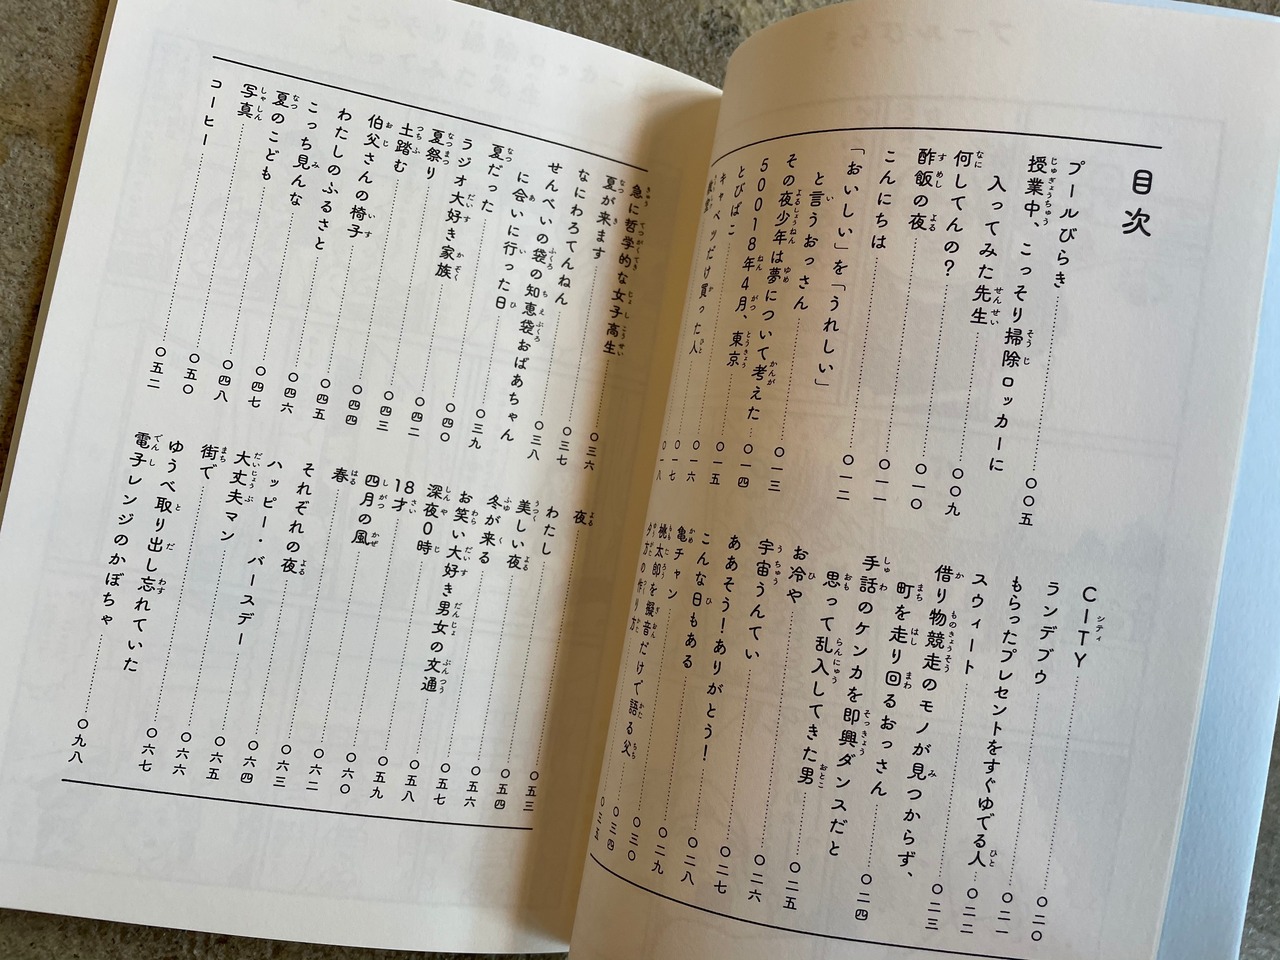 目次
プールびらき……〇〇五
授業中、こっそり掃除ロッカーに
入ってみた先生……〇〇九
何してんの？……〇一〇
酢飯の夜……〇一一
こんにちは……〇一二
「おいしい」を「うれしい」
と言うおっさん……〇一三
その夜少年は夢について考えた……〇一四
50018年4月、東京……〇一五
とびばこ……〇一六
キャベツだけ買った人……〇一七
〇一八
CITY……〇二〇
ランデブウ……〇二一
もらったプレセントをすぐゆでる人……〇二二
スウィート……〇二三
借り物競走のモノが見つからず、
町を走り回るおっさん……〇二四
手話のケンカを即興ダンスだと
思って乱入してきた男……〇二五
お冷や……〇二六
宇宙うんてい……〇二七
ああそう！ありがとう！……〇二八
こんな日もある……〇二九
亀チャン……〇三〇
桃太郎を擬音だけで語る父……〇三四
夕方の作り方……〇三五
急に哲学的な女子高生……〇三六
夏が来ます……〇三七
なにわろてんねん……〇三八
せんべいの袋の知恵袋おばあちゃん
に会いに行った日……〇三九
夏だった……〇四〇
ラジオ大好き家族……〇四二
夏祭り……〇四三
土踏む……〇四四
伯父さんの椅子……〇四五
わたしのふるさと……〇四六
こっち見んな……〇四七
夏のこども……〇四八
写真……〇五〇
コーヒー……〇五二
夜……〇五三
わたし……〇五四
美しい夜……〇五六
冬が来る……〇五七
お笑い大好き男女の文通……〇五八
深夜0時……〇五九
18才……〇六〇
四月の風……〇六二
春……〇六三
それぞれの夜……〇六四
ハッピー・バースデー……〇六五
大丈夫マン……〇六六
街で……〇六七
ゆうべ取り出し忘れていた
電子レンジのかぼちゃ……〇九八